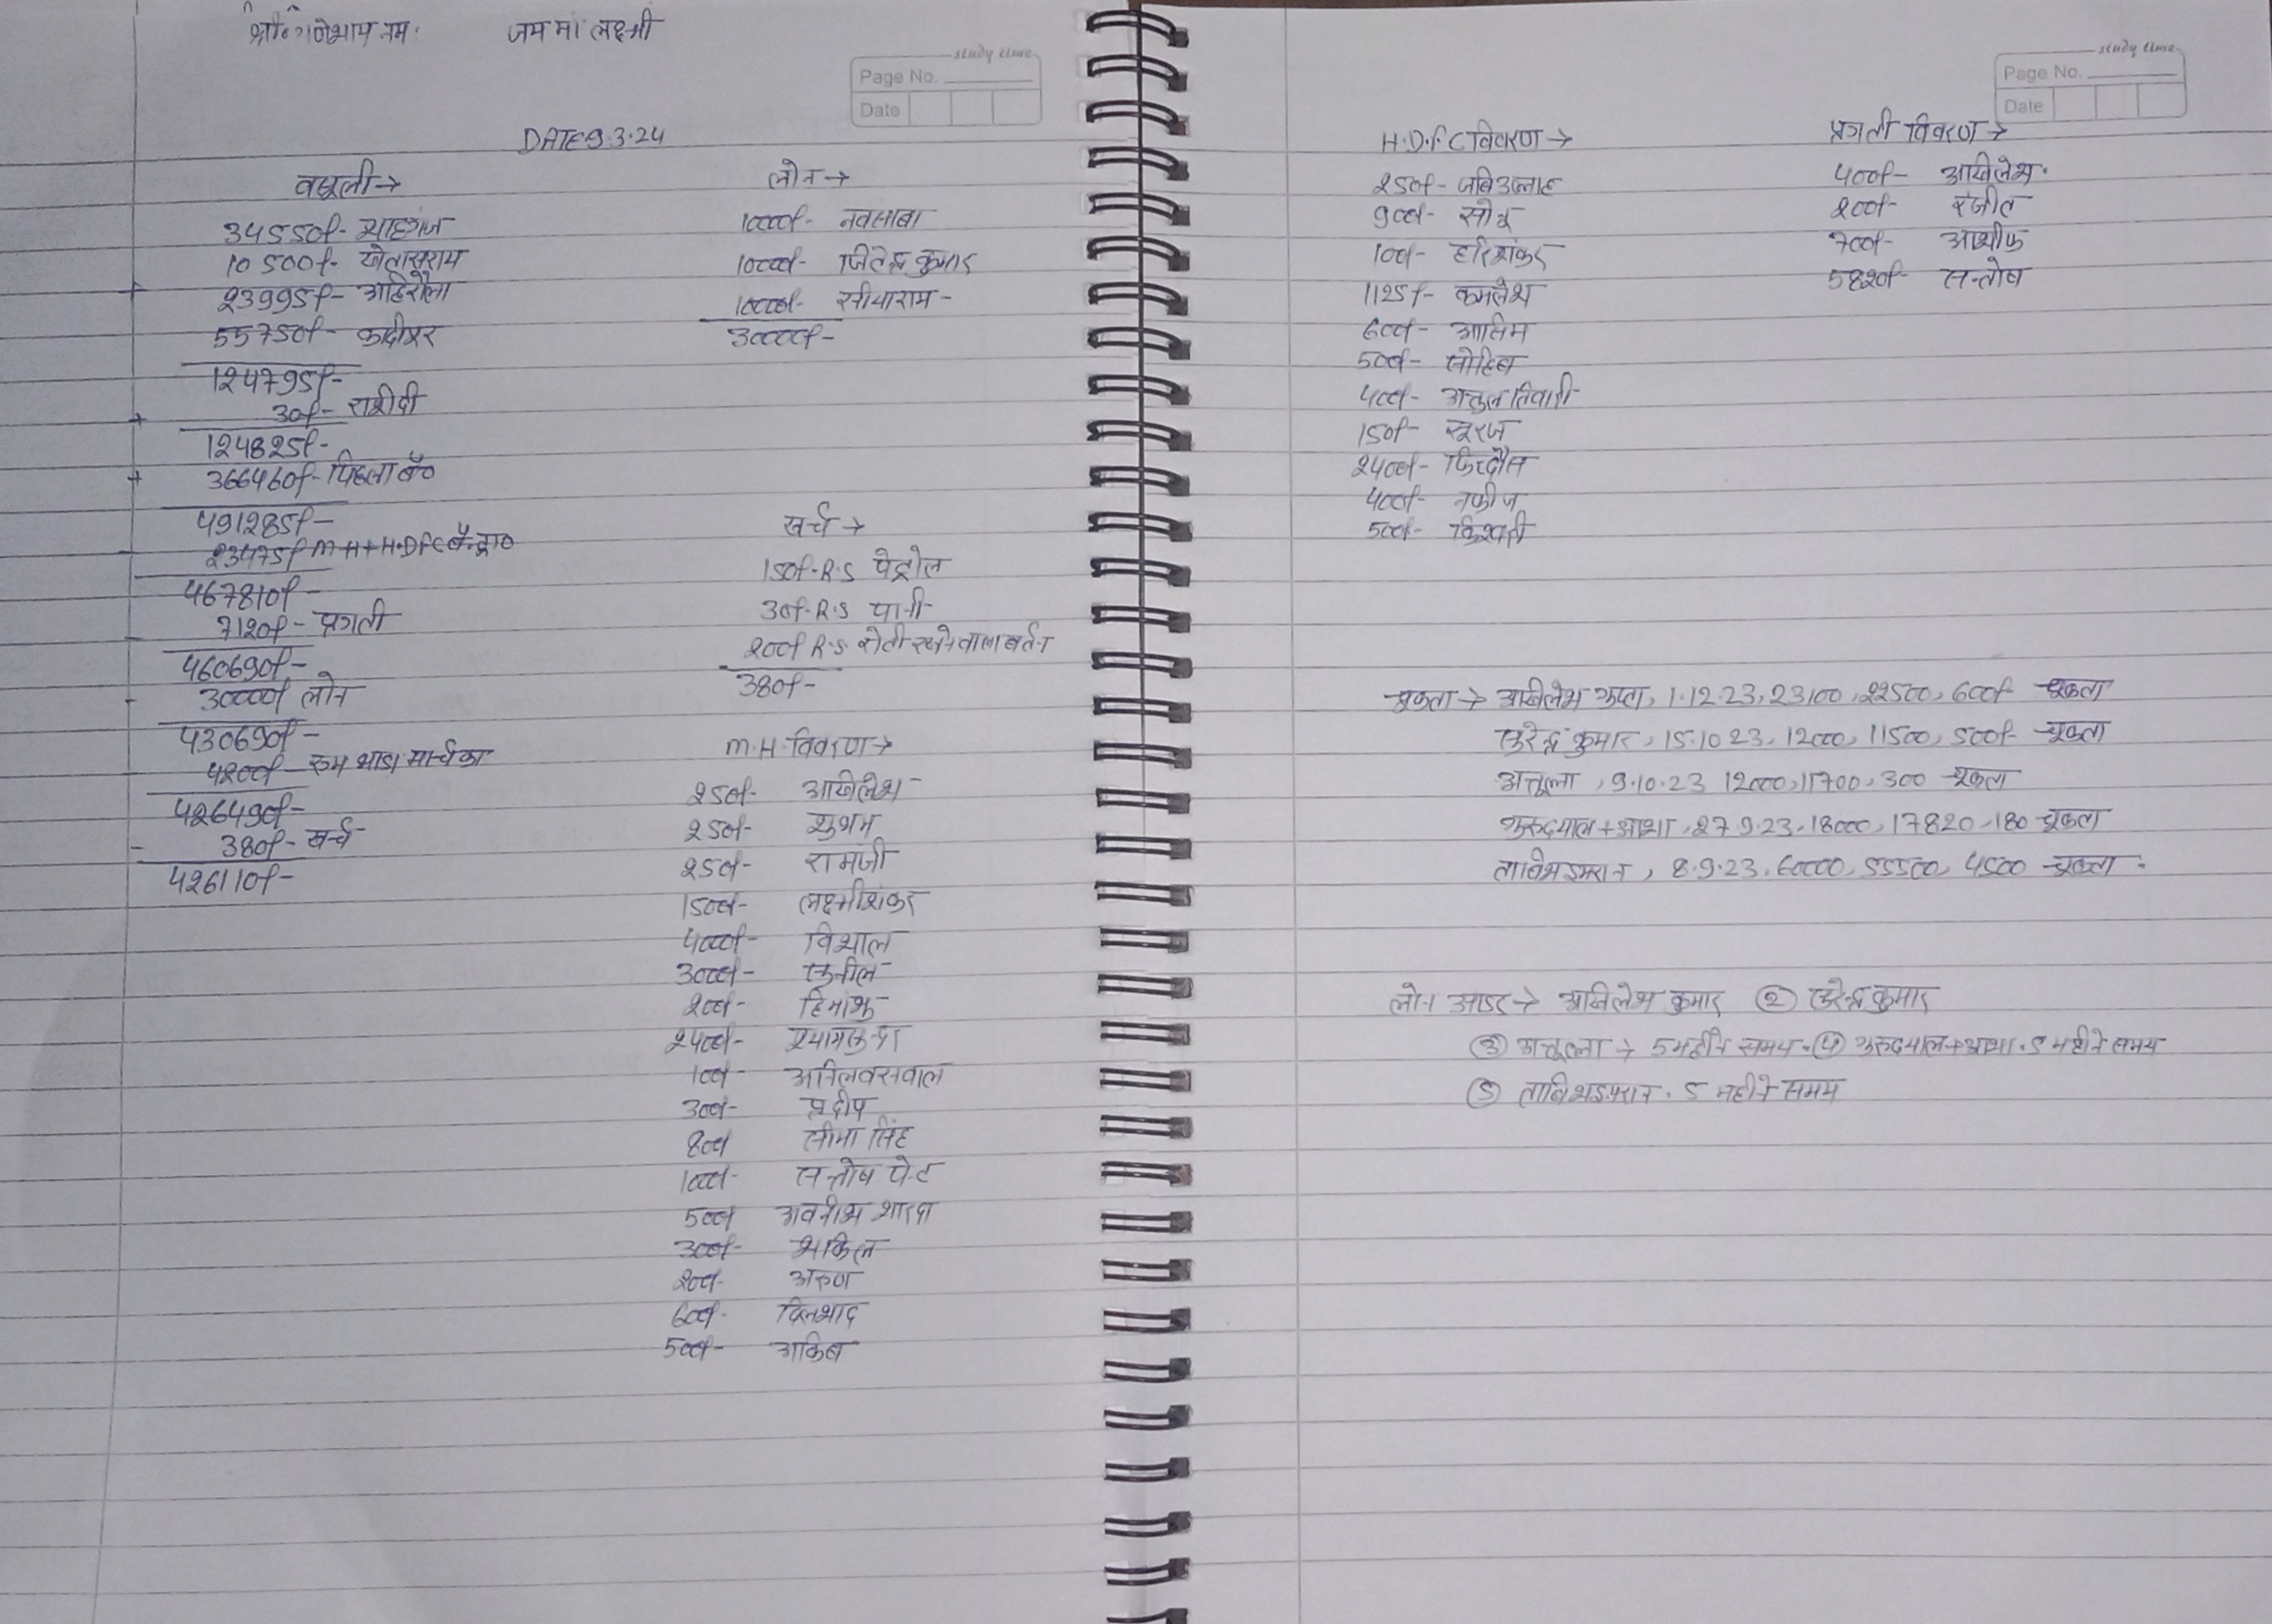 श्री गणेशाय नमः जय मां लक्ष्मी
study time
Page No.
Date
DATE 9.3.24
वसूली →
34550/- शाहगंज
10500/- खेतासराय
+ 23995/- अहिरौला
55750/- कादीपुर
124795/-
+ 30/- राशीदी
124825/-
+ 366460/- पिछला बै०
491285/-
- 23475/- M.H + H.D.F.C बैं० द्वा०
467810/-
- 7120/- प्रगती
460690/-
- 30000/- लोन
430690/-
4200/- रूम भाडा मार्च का
426490/-
- 380/- खर्च
426110/-
लोन →
10000/- नवसाबा
10000/- जितेन्द्र कुमार
10000/- सीयाराम -
30000/-
खर्च →
150/- R.S पेट्रोल
30/- R.S पानी
200/- R.S. रोटी रखने वाला बर्तन
380/-
M.H. विवरण →
250/- अखिलेश
250/- शुभम
250/- रामजी
1500/- लक्ष्मीशंकर
4000/- विशाल
3000/- सुनील
200/- हिमांशु
2400/-
100/-
300/- प्रदीप
800/ सीमा सिंह
1000/- सन्तोष पेन्ट
500/ अवनीश शारदा
3000/- शकिल
200/- अरुण
600/- दिलशाद
500/- आकिब
study time
Page No.
Date
H.D.F.C विवरण →
250/- जबिउल्लाह
900/- सोनू
100/- हरिशंकर
1125/- कमलेश
600/- आसिम
500/- सोहिब
400/- अतुल तिवारी
150/- सूरज
2400/- फिरदौस
400/- नफीज
500/-
प्रगती विवरण →
400/- अखिलेश
200/- रंजीत
700/- आशीक
5820/- सन्तोष
चुकता → अखिलेश गुप्ता, 1.12.23, 23100, 22500, 600/- चुकता
सुरेन्द्र कुमार, 15.10.23, 12000, 11500, 500/- चुकता
अतुल्ला, 9.10.23 12000, 11700, 300 चुकता
गुरुदयाल + आशा, 27.9.23, 18000, 17820, 180 चुकता
ताबिश इमरान, 8.9.23, 60000, 55500, 4500 चुकता
लोन आडर → अखिलेश कुमार ② सुरेन्द्र कुमार
③ अतुल्ला → 5 महीने समय. ④ गुरुदयाल + आशा. 5 महीने समय
⑤ ताबिश इमरान. 5 महीने समय